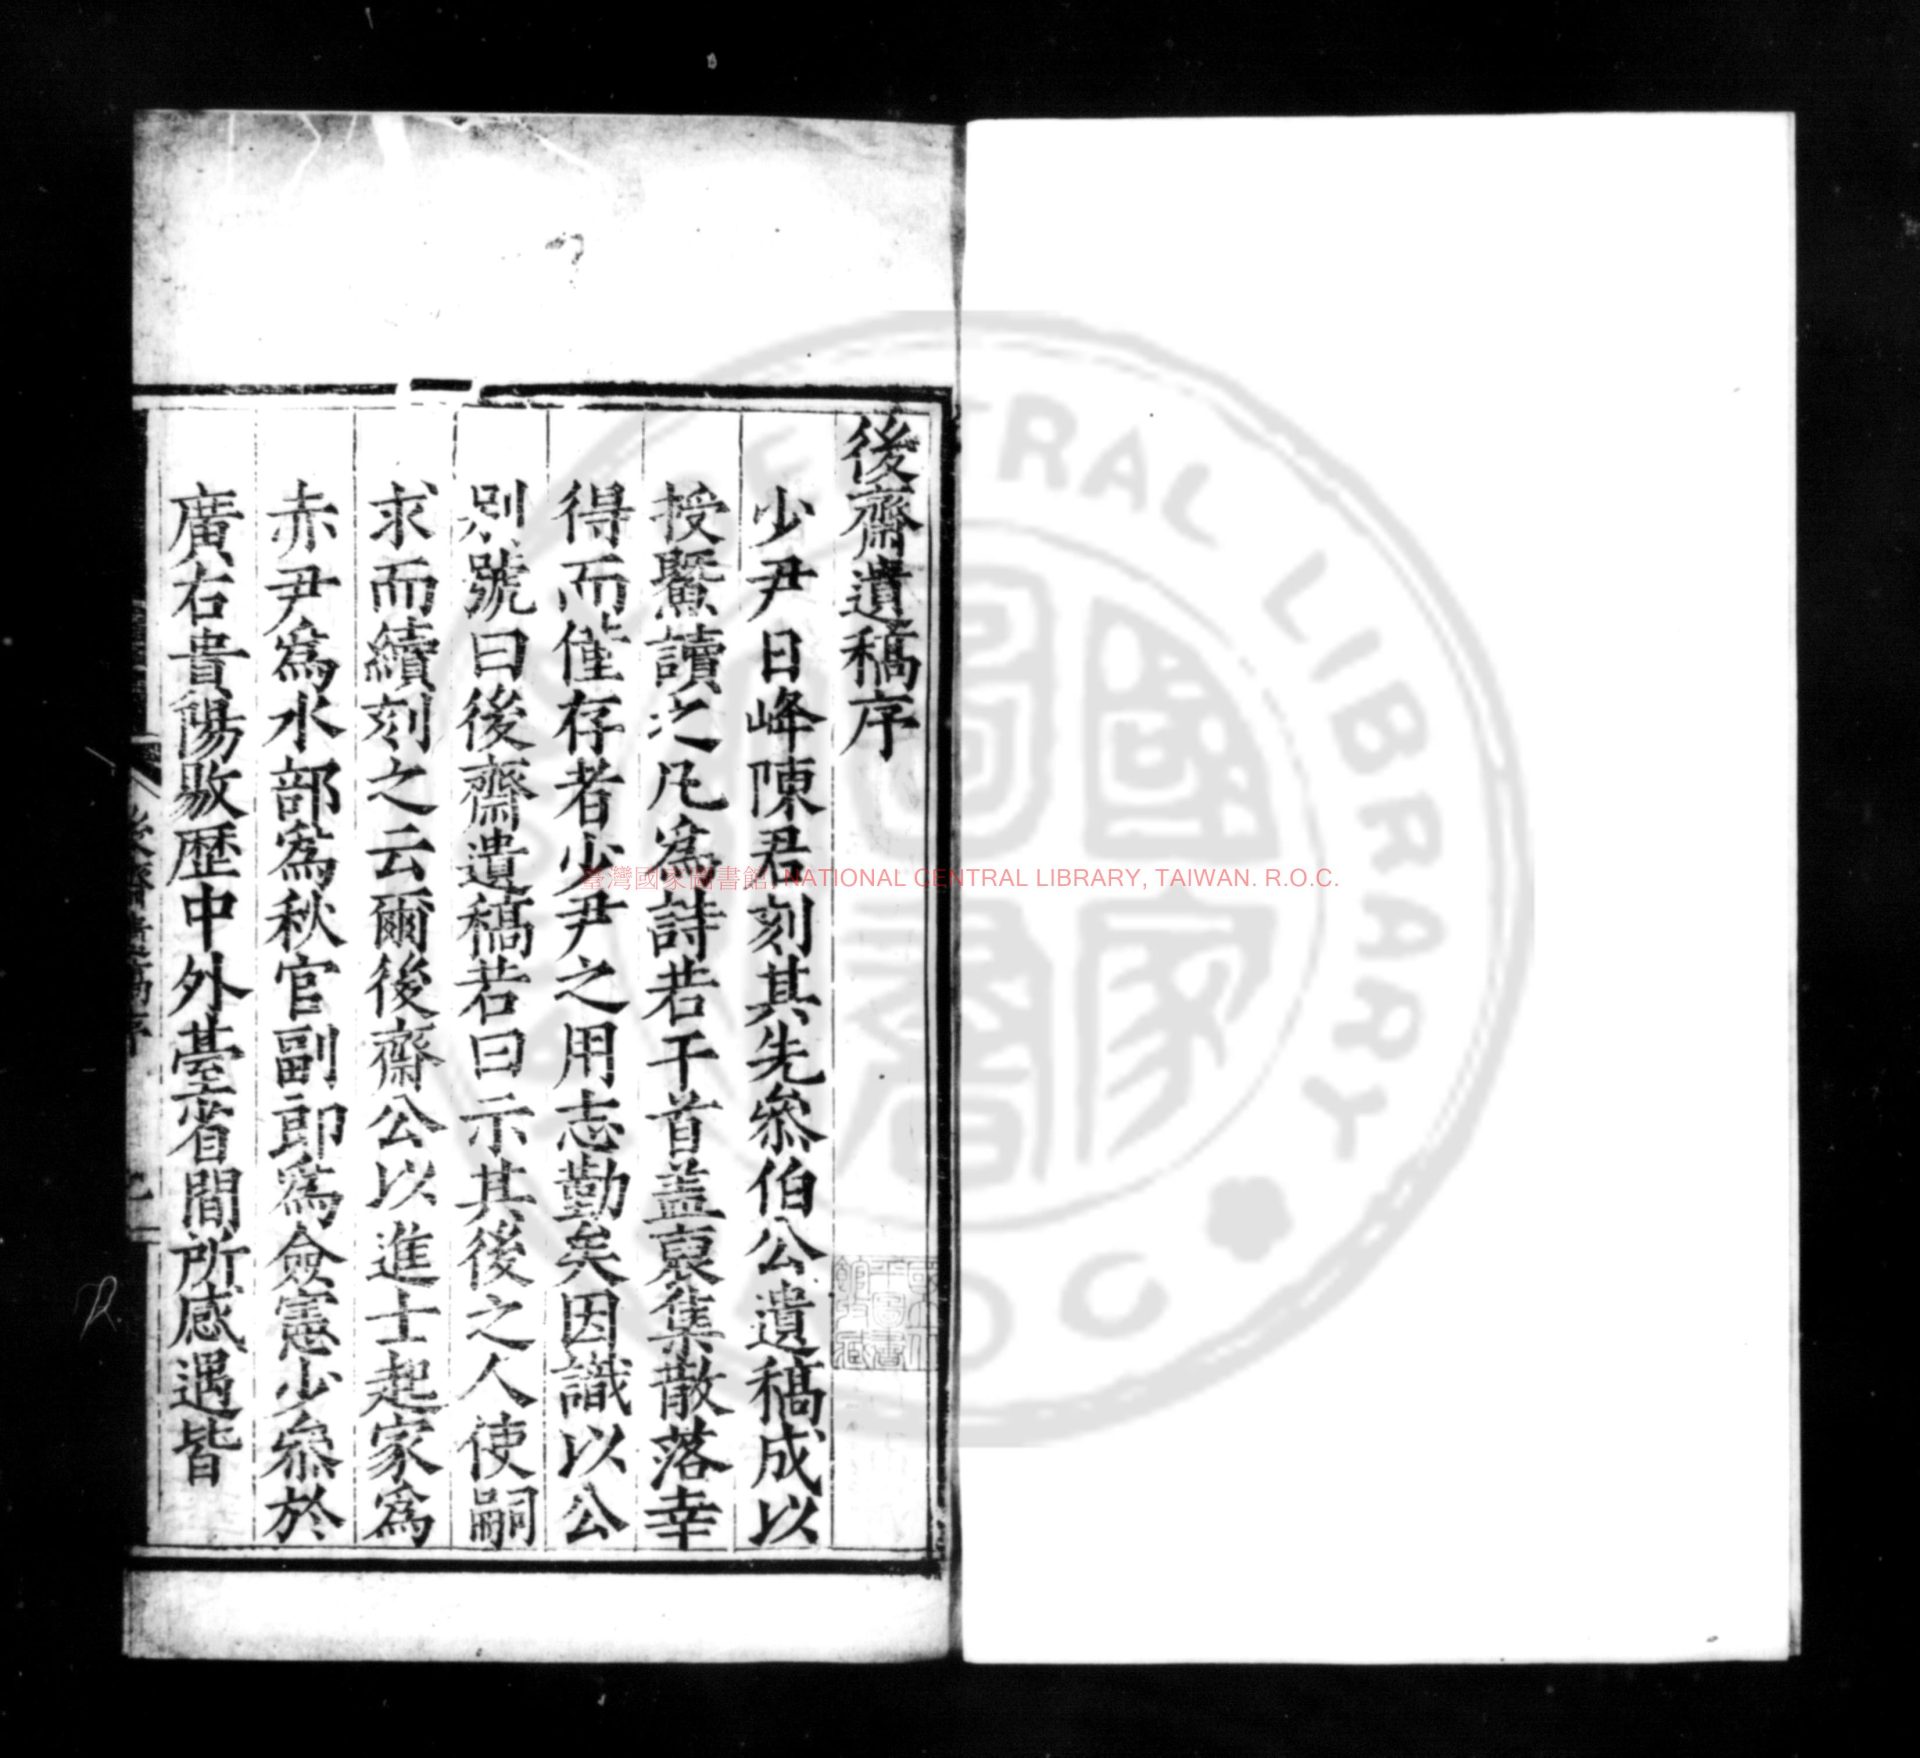 後齋遺稿序
少尹日峰陳君刻其先叅伯公遺稿成以
授鰲讀之凡爲詩若干首盖裒集散落幸
得而僅存者少尹之用志勤矣因識以公
別號曰後齋遺稿若曰示其後之人使嗣
求而續刻之云爾後齋公以進士起家爲
赤尹爲水部爲秋官副郎爲僉憲少叅於
廣右貴陽敭歷中外臺省間所感遇皆
後齋遺稿序
臺灣國家圖書館, NATIONAL CENTRAL LIBRARY, TAIWAN. R.O.C.